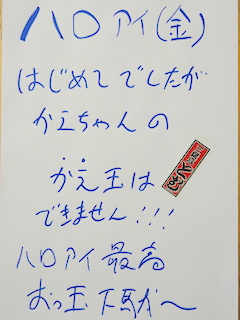 ハロアイ(金)
はじめてでしたが
かえちゃんの
かえ玉は
できません!!!
ハロアイ最高
おっ玉下駄〜